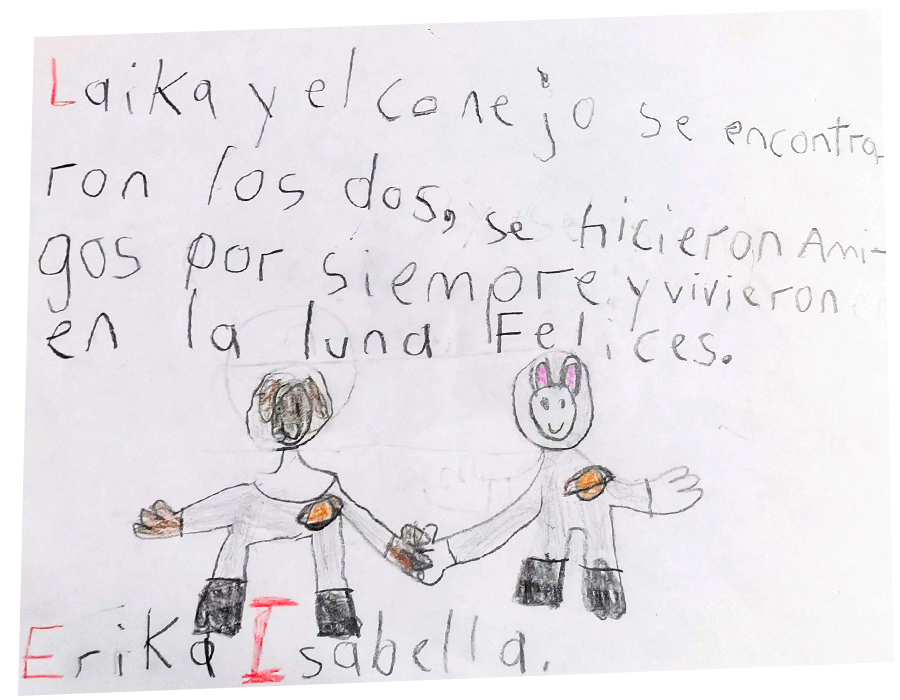 Laika y el conejo se encontra-
ron los dos, se hicieron Ami-
gos por siempre y vivieron
en la luna Felices.
Erika Isabella.